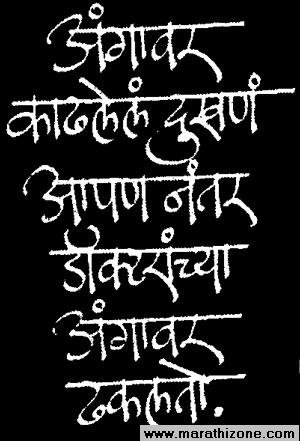 अंगावर
काढलेलं दुखणं
आपण नंतर
डॉक्टरांच्या
अंगावर
ढकलतो.
www.marathizone.com